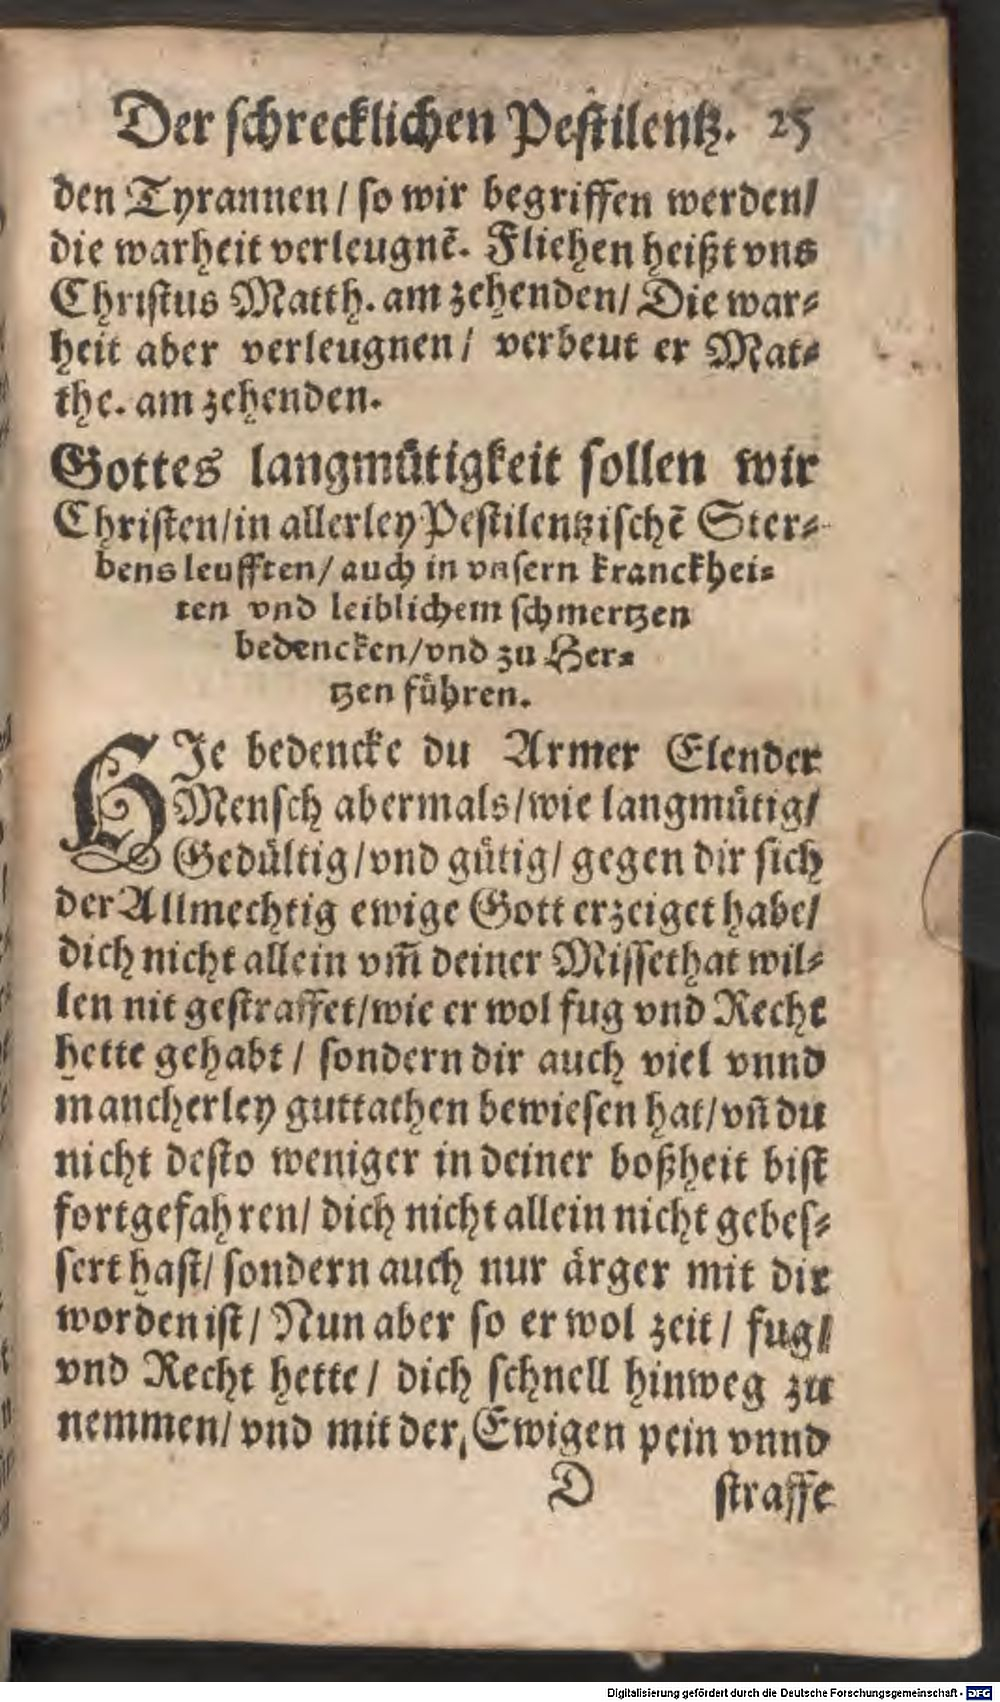 Der schrecklichen Pestilentz. 25
den Tyrannen / so wir begriffen werden/
die warheit verleugnẽ. Fliehen heißt vns
Christus Matth. am zehenden/ Die war⸗
heit aber verleugnen / verbeut er Mat⸗
the. am zehenden.
Gottes langmuͤtigkeit sollen wir
Christen/in allerley Pestilentzischẽ Ster⸗
bensleufften/ auch in vnsern kranckhei⸗
ten vnd leiblichem schmertzen
bedencken/vnd zu Her⸗
tzen fuͤhren.
HIe bedencke du Armer Elender
Mensch abermals/wie langmuͤtig/
Geduͤltig/vnd guͤtig/ gegen dir sich
der Allmechtig ewige Gott erzeiget habe/
dich nicht allein vm̃ deiner Missethat wil⸗
len nit gestraffet/wie er wol fug vnd Recht
hette gehabt / sondern dir auch viel vnnd
mancherley guttathen bewiesen hat/vñ du
nicht desto weniger in deiner boßheit bist
fortgefahren/ dich nicht allein nicht gebes⸗
sert hast/ sondern auch nur aͤrger mit dir
worden ist / Nun aber so er wol zeit / fug/
vnd Recht hette / dich schnell hinweg zu
nemmen/ vnd mit der Ewigen pein vnnd
D straffe
Digitalisierung gefördert durch die Deutsche Forschungsgemeinschaft - DFG